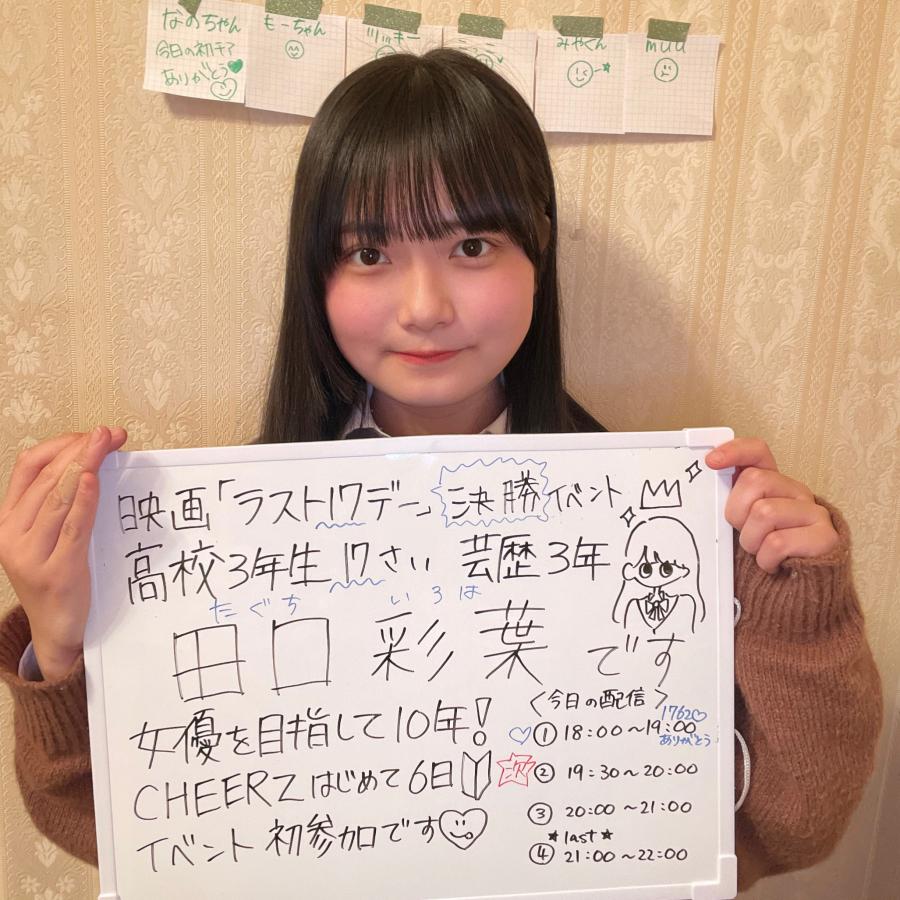 なのちゃん
今日の初チア
ありがとう
もーちゃん
みやくん
muu
映画「ラスト17デー」決勝イベント
高校3年生 17さい 芸歴3年
たぐち いろは
田口 彩葉 です
女優を目指して10年!
CHEERZはじめて6日
イベント 初参加です
〈今日の配信〉
1762♡
① 18:00~19:00
ありがとう
次 ② 19:30~20:00
③ 20:00~21:00
★last★
④ 21:00~22:00